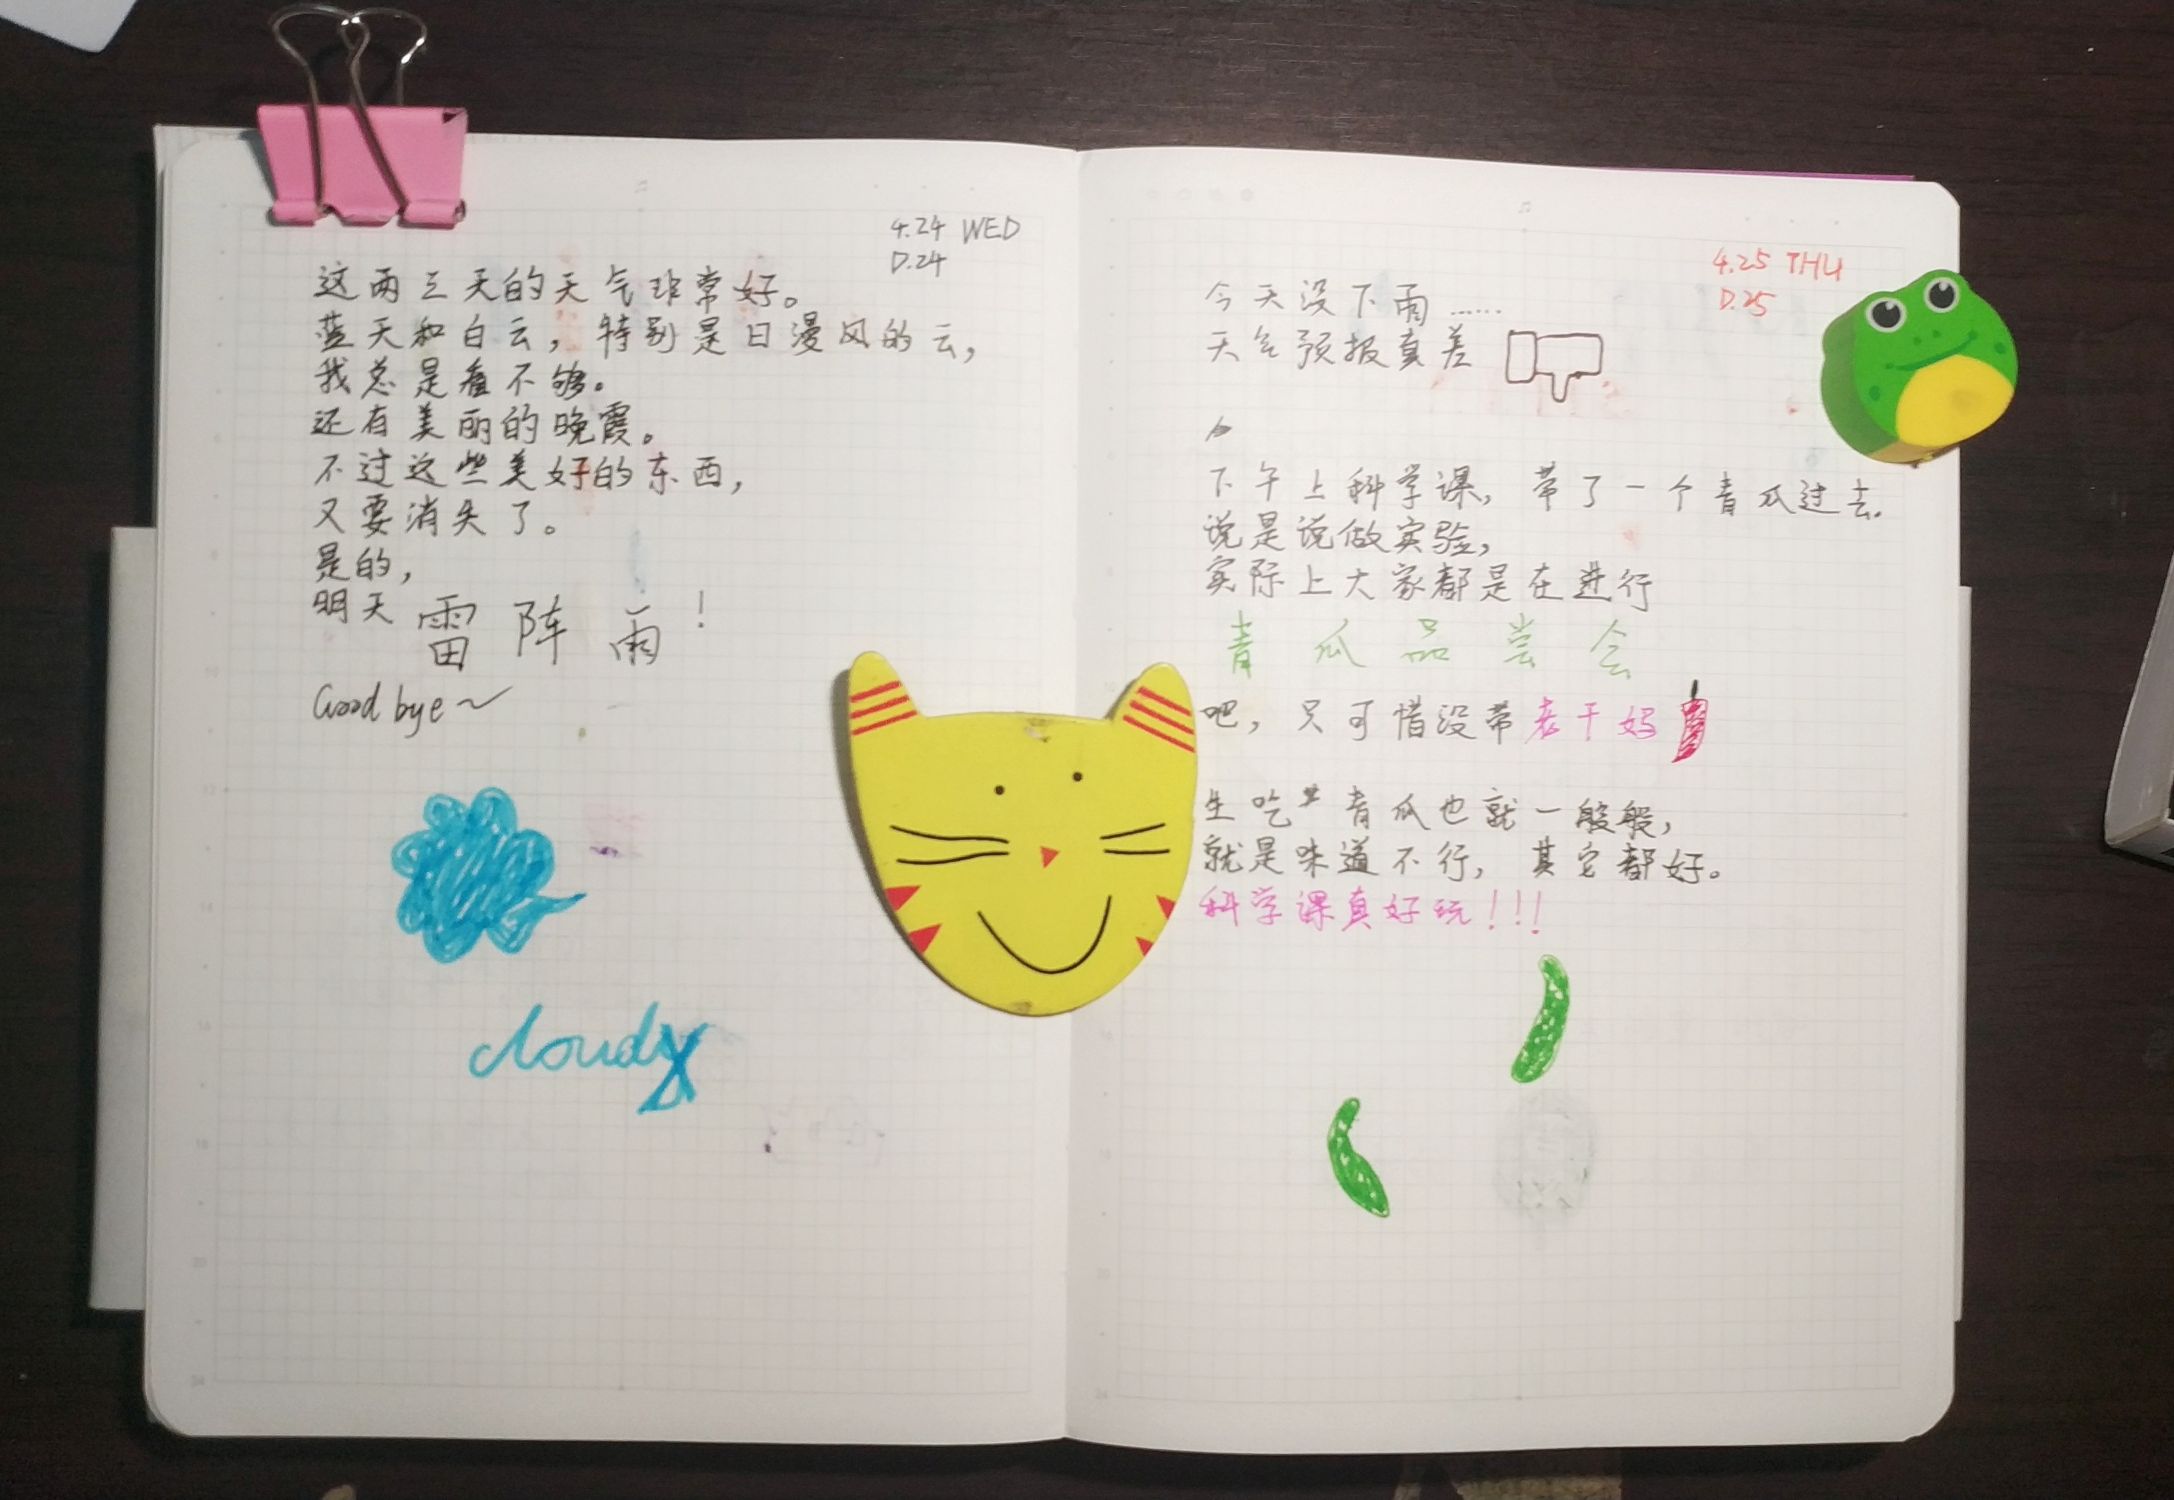 4.24 WED
D.24
这两三天的天气非常好。
蓝天和白云，特别是日漫风的云，
我总是看不够。
还有美丽的晚霞。
不过这些美好的东西，
又要消失了。
是的，
明天 雷阵雨！
Good bye～
cloudy
4.25 THU
D.25
今天没下雨……
天气预报真差
下午上科学课，带了一个青瓜过去。
说是说做实验，
实际上大家都是在进行
青瓜品尝会
吧，只可惜没带老干妈
生吃青瓜也就一般般，
就是味道不行，其它都好。
科学课真好玩！！！